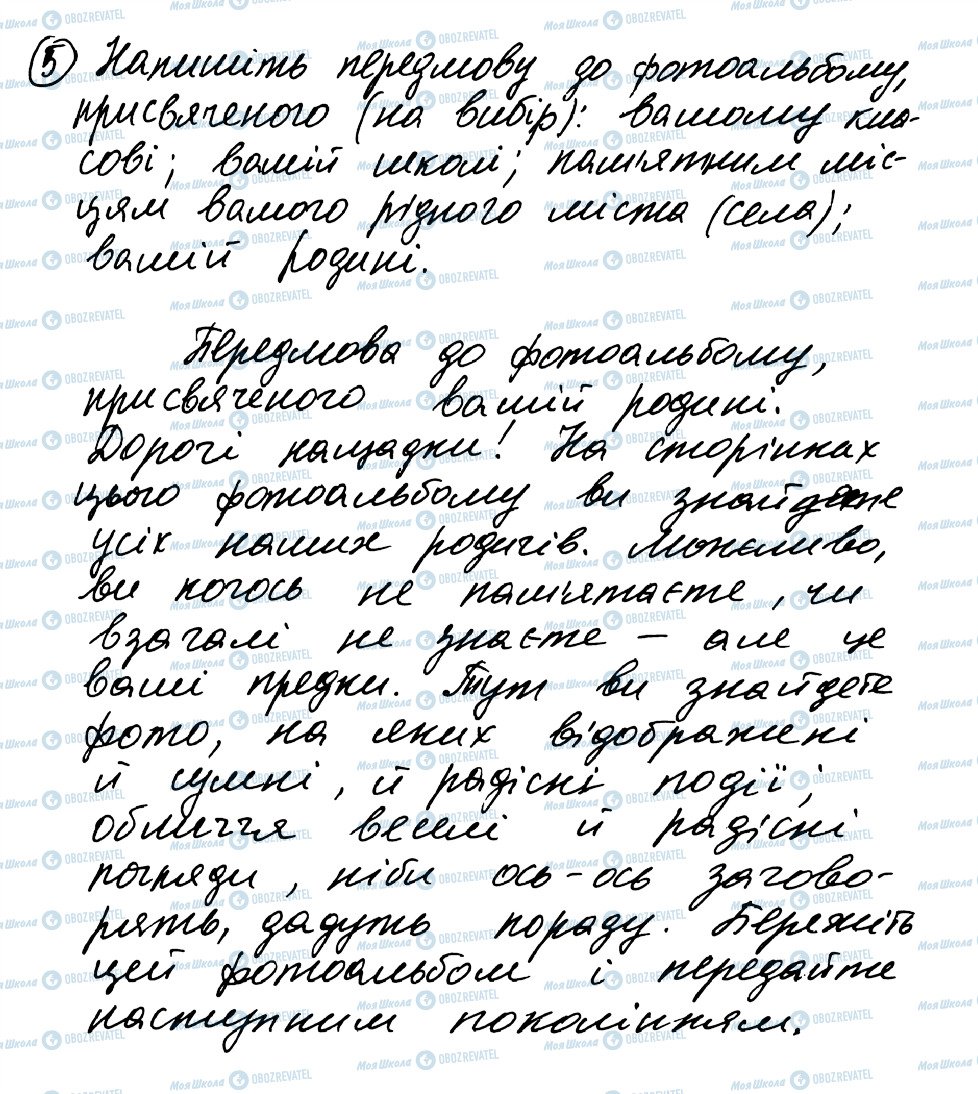 5 Напишіть передмову до фотоальбому,
присвяченого (на вибір): вашому кла-
сові; вашій школі; пам'ятним міс-
цям вашого рідного міста (села);
вашій родині.
Передмова до фотоальбому,
присвяченого вашій родині.
Дорогі нащадки! На сторінках
цього фотоальбому ви знайдете
усіх наших родичів. Можливо,
ви когось не пам'ятаєте, чи
взагалі не знаєте – але це
ваші предки. Тут ви знайдете
фото, на яких відображені
й сумні, й радісні події;
обличчя веселі й радісні
погляди, ніби ось-ось загово-
рять, дадуть пораду. Бережіть
цей фотоальбом і передайте
наступним поколінням.